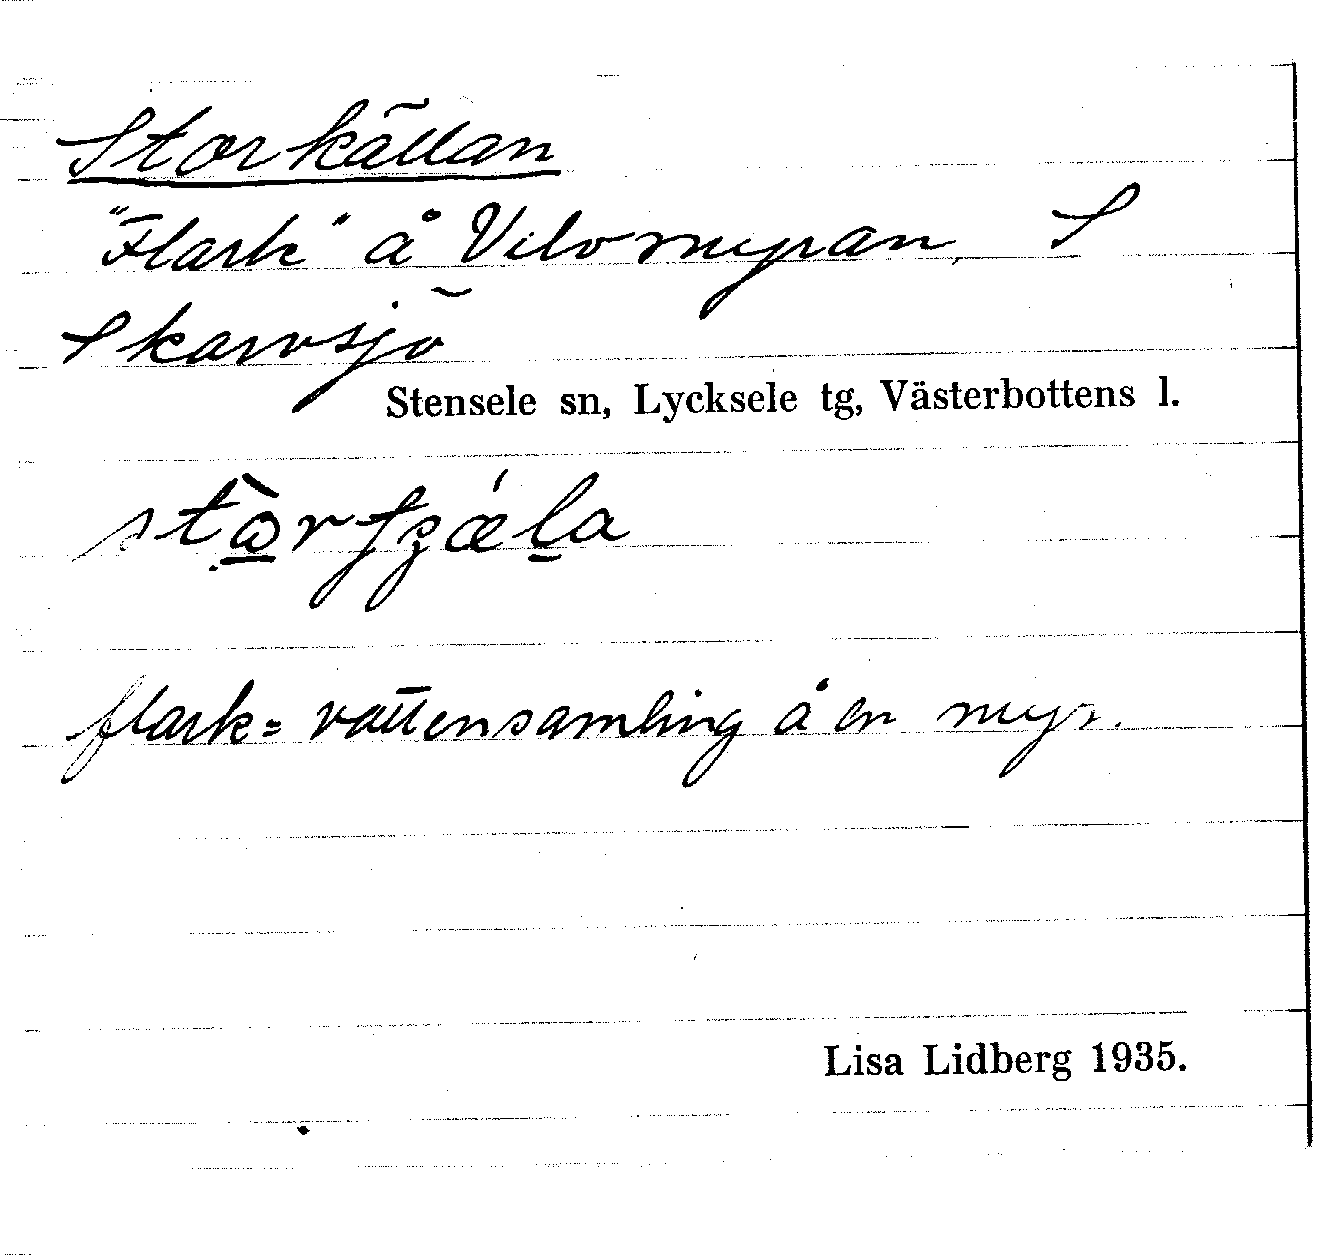 Storkällan
"Flark" å Vilomyran, S
Skarvsjö
Stensele sn, Lycksele tg, Västerbottens l.
flark = vattensamling å en myr.
Lisa Lidberg 1935.